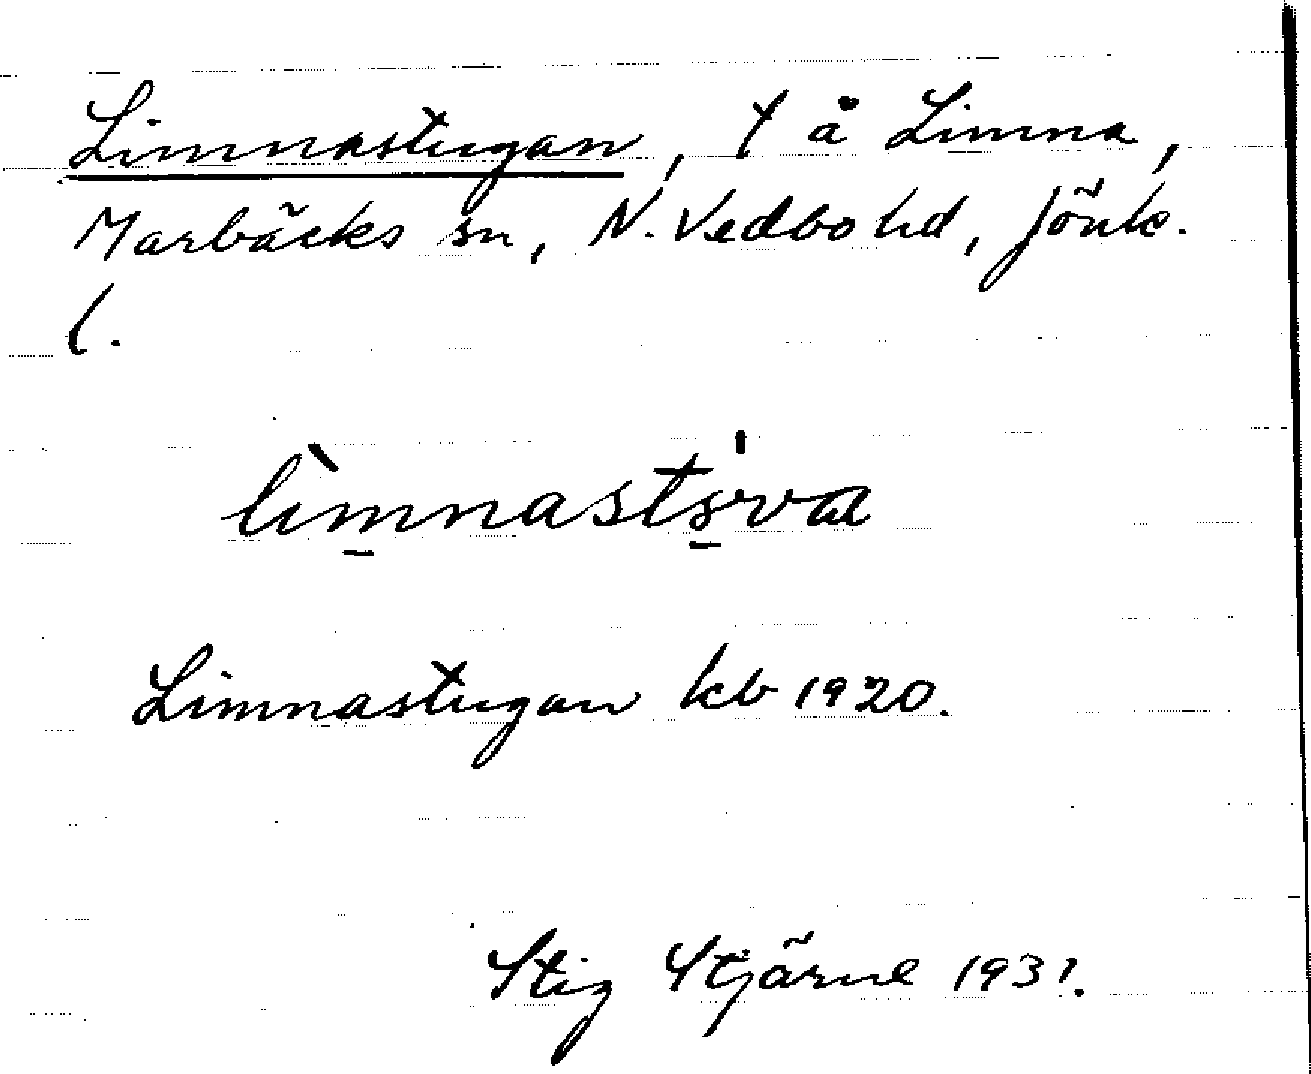 Limnastugan, t å Limna,
Marbäcks sn, N. Vedbo hd, Jönk.
l.
Limnastugan kb 1920.
Stig Stjärne 1931.